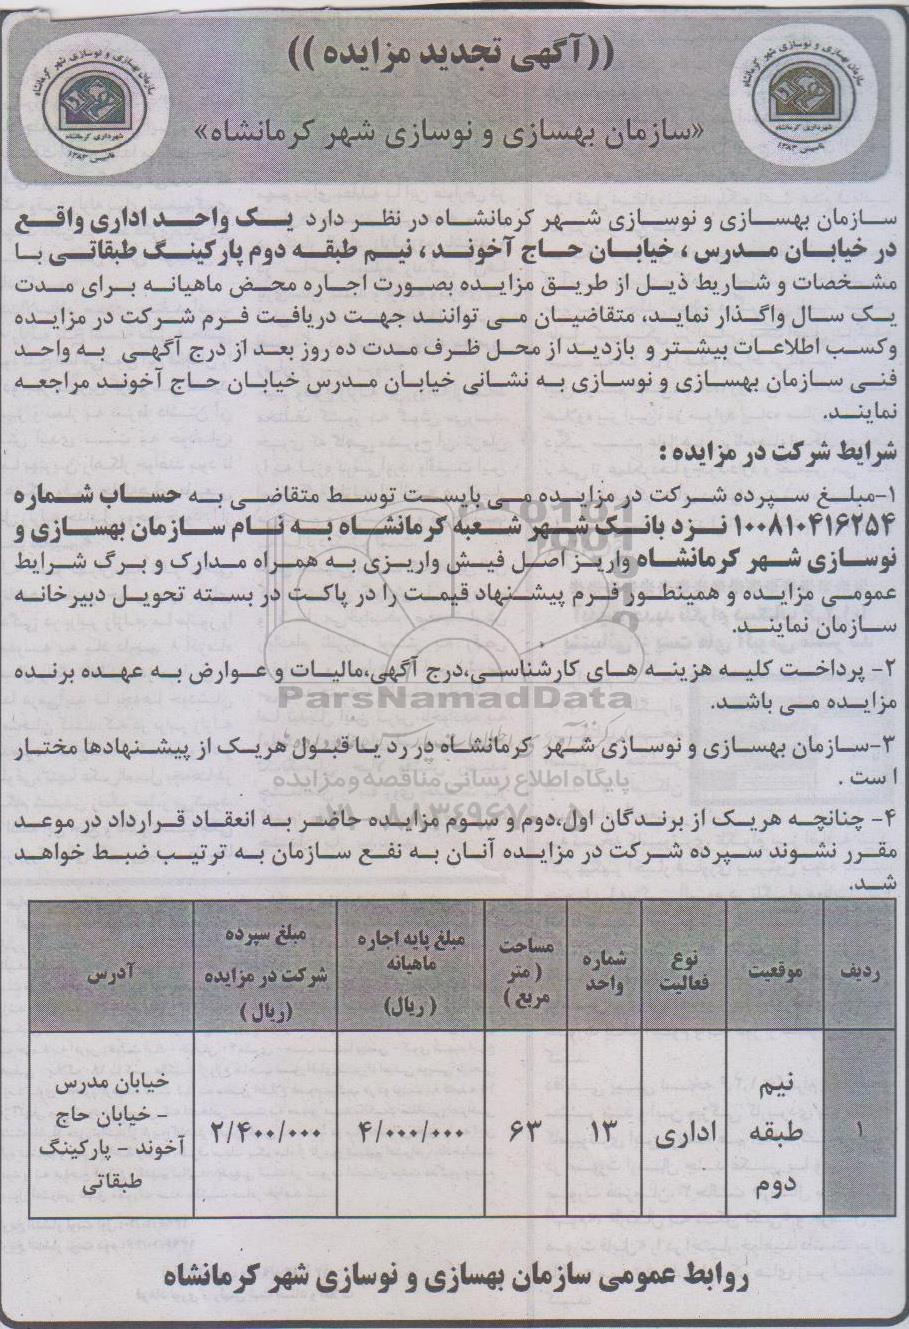 ((آگهی تجدید مزایده ))
«سازمان بهسازی و نوسازی شهر کرمانشاه»
سازمان بهسازی و نوسازی شهر کرمانشاه
شهرداری کرمانشاه
تاسیس ۱۳۸۳
سازمان بهسازی و نوسازی شهر کرمانشاه
شهرداری کرمانشاه
تاسیس ۱۳۸۳
سازمان بهسازی و نوسازی شهر کرمانشاه در نظر دارد یک واحد اداری واقع
در خیابان مدرس ، خیابان حاج آخوند ، نیم طبقه دوم پارکینگ طبقاتی با
مشخصات و شاریط ذیل از طریق مزایده بصورت اجاره محض ماهیانه برای مدت
یک سال واگذار نماید، متقاضیان می توانند جهت دریافت فرم شرکت در مزایده
وکسب اطلاعات بیشتر و بازدید از محل ظرف مدت ده روز بعد از درج آگهی به واحد
فنی سازمان بهسازی و نوسازی به نشانی خیابان مدرس خیابان حاج آخوند مراجعه
نمایند.
شرایط شرکت در مزایده :
۱-مبلغ سپرده شرکت در مزایده می بایست توسط متقاضی به حساب شماره
۱۰۰۸۱۰۴۱۶۲۵۴ نزد بانک شهر شعبه کرمانشاه به نام سازمان بهسازی و
نوسازی شهر کرمانشاه واریز اصل فیش واریزی به همراه مدارک و برگ شرایط
عمومی مزایده و همینطور فرم پیشنهاد قیمت را در پاکت در بسته تحویل دبیرخانه
سازمان نمایند.
۲- پرداخت کلیه هزینه های کارشناسی،درج آگهی،مالیات و عوارض به عهده برنده
مزایده می باشد.
۳-سازمان بهسازی و نوسازی شهر کرمانشاه در رد یا قبول هریک از پیشنهادها مختار
است .
۴- چنانچه هریک از برندگان اول،دوم و سوم مزایده حاضر به انعقاد قرارداد در موعد
مقرر نشوند سپرده شرکت در مزایده آنان به نفع سازمان به ترتیب ضبط خواهد
شد.
ParsNamadData
پایگاه اطلاع رسانی مناقصه و مزایده
ردیف
موقعیت
نوع
فعالیت
شماره
واحد
مساحت
( متر
مربع )
مبلغ پایه اجاره
ماهیانه
( ریال)
مبلغ سپرده
شرکت در مزایده
(ریال )
آدرس
۱
نیم
طبقه
دوم
اداری
۱۳
۶۳
۴/۰۰۰/۰۰۰
۲/۴۰۰/۰۰۰
خیابان مدرس
– خیابان حاج
آخوند – پارکینگ
طبقاتی
روابط عمومی سازمان بهسازی و نوسازی شهر کرمانشاه